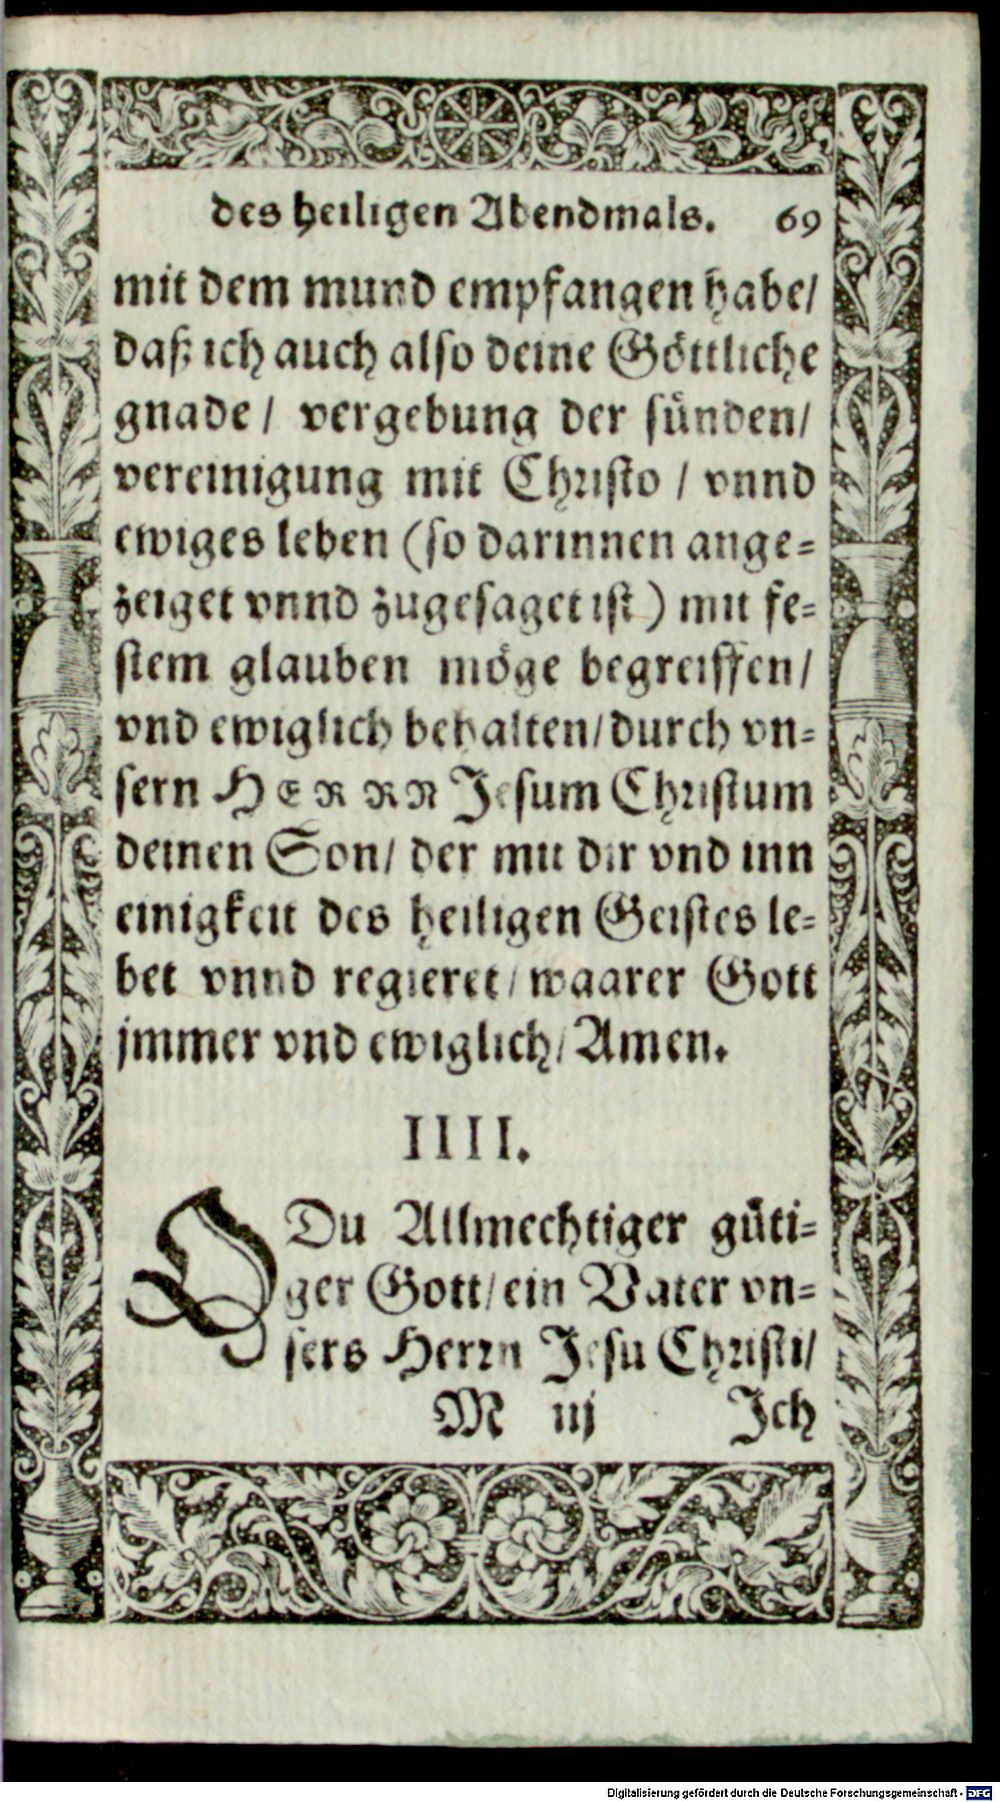 des heiligen Abendmals. 69
mit dem mund empfangen habe/
daß ich auch also deine Göttliche
gnade / vergebung der sünden/
vereinigung mit Christo / vnnd
ewiges leben (so darinnen ange=
zeiget vnnd zugesaget ist) mit fe=
stem glauben möge begreiffen/
vnd ewiglich behalten/durch vn=
sern HERRN Jesum Christum
deinen Son/ der mit dir vnd inn
einigkeit des heiligen Geistes le=
bet vnnd regieret/waarer Gott
jmmer vnd ewiglich/Amen.
IIII.
O Du Allmechtiger güti=
ger Gott/ein Vater vn=
sers Herrn Jesu Christi/
M iij Jch
Digitalisierung gefördert durch die Deutsche Forschungsgemeinschaft - DFG